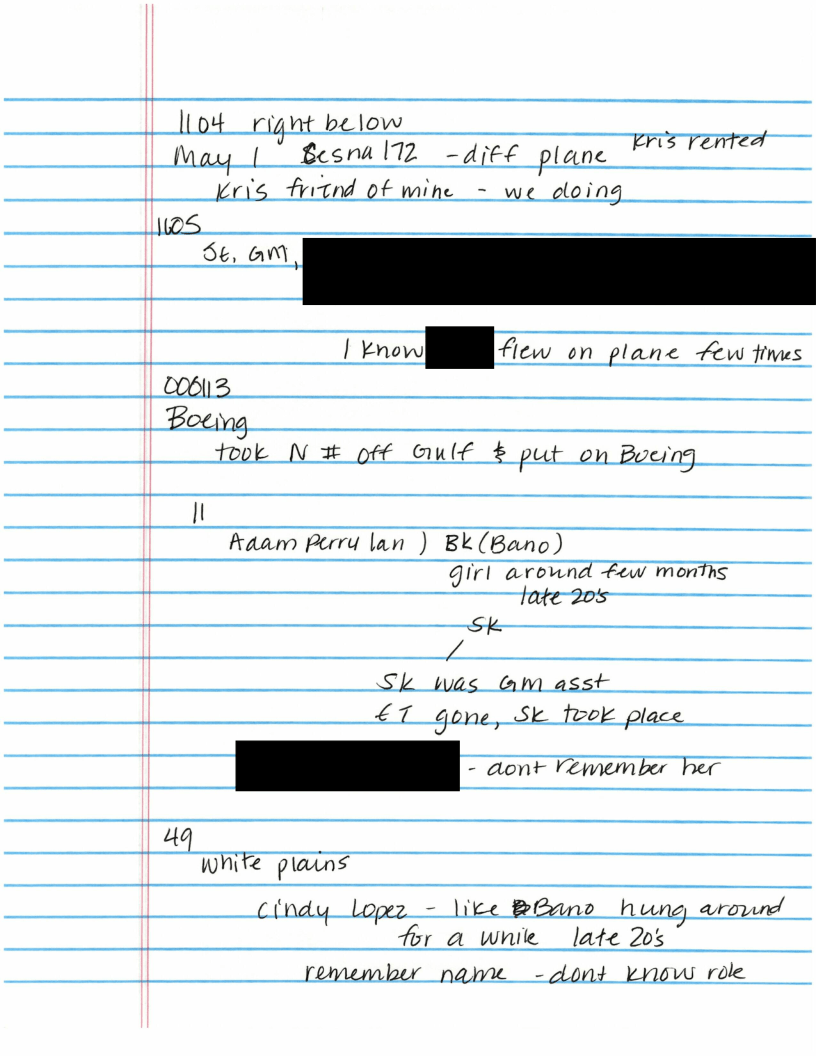 1104 right below
May 1 Sesna 172 - diff plane Kris rented
Kris friend of mine - we doing
1105
JE, GM,
I know flew on plane few times
006113
Boeing
took N # off Gulf & put on Boeing
11
Adam Perry lan ) BK (Bano)
girl around few months
late 20's
SK
/
SK was GM asst
ET gone, SK took place
- dont remember her
49
White plains
Cindy Lopez - like Bano hung around
for a while late 20's
remember name - dont know role